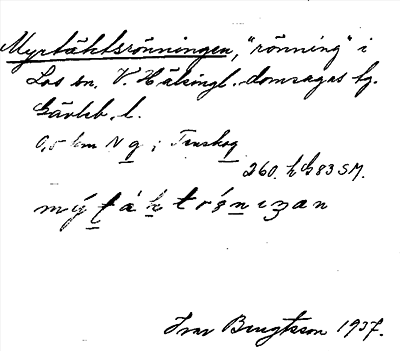 Myrtäktsrönningen, "rönning" i
Los sn. V. Hälsingl. domsagas tg.
Gävleb. l.
0,5 km N g ; Tenskog
260. h G 83 SM.
Ivar Bengtsson 1937.